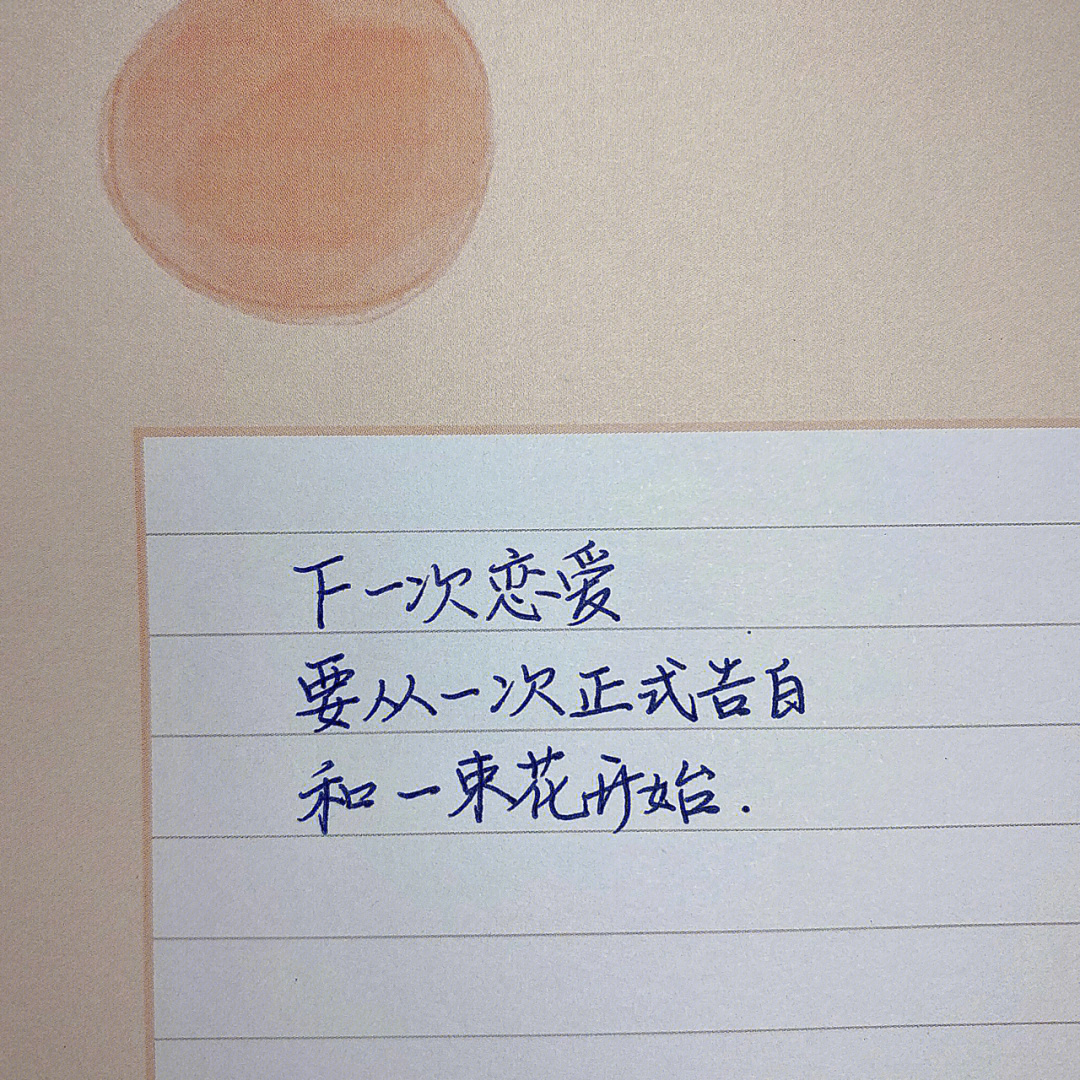 下一次恋爱
要从一次正式告白
和一束花开始.